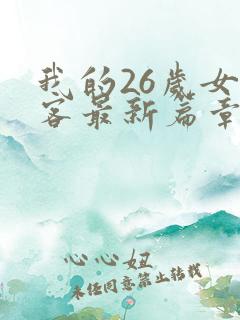 我的26岁女
客最新篇章
心心妞
未经同意禁止转载